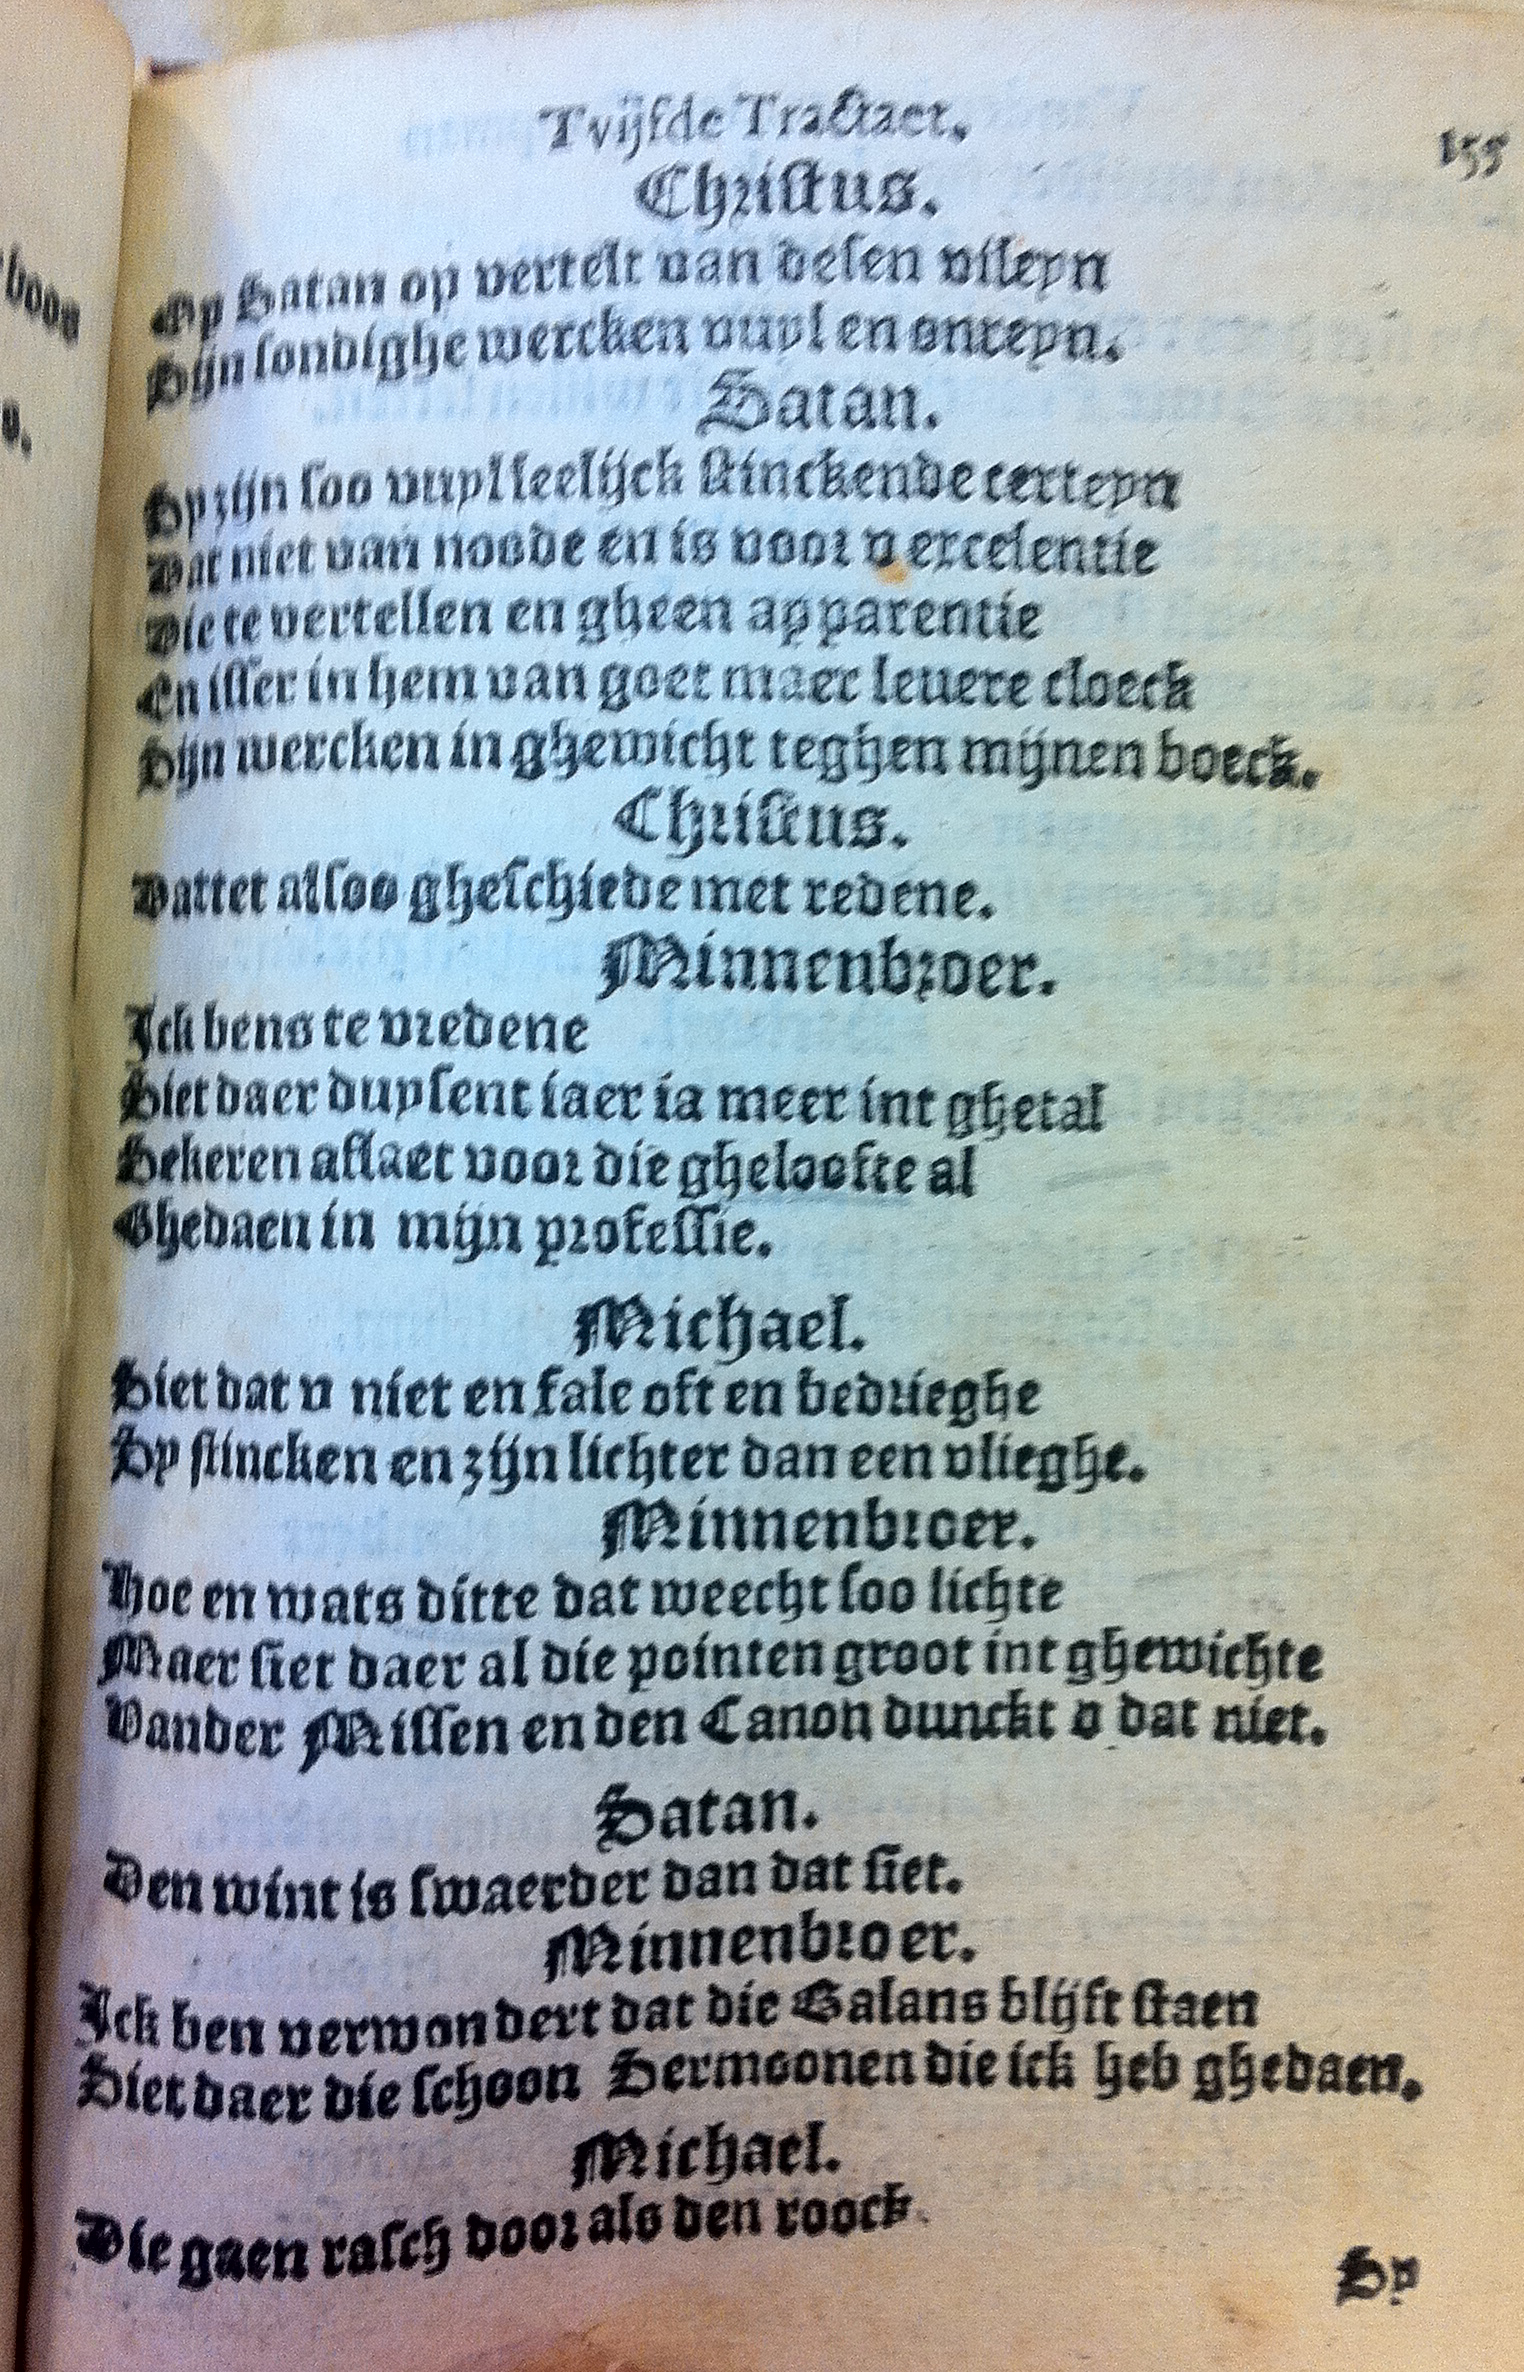 Tvijfde Tractaet.
155
Christus.
Op Satan op vertelt van desen vileyn
Sijn sondighe wercken vuyl en onreyn.
Satan.
Sy zijn soo vuyl leelijck stinckende certeyn
Dat niet van noode en is voor v excelentie
Die te vertellen en gheen apparentie
En isser in hem van goet maer levere cloeck
Sijn wercken in ghewicht teghen mijnen boeck.
Christus.
Dattet alsoo gheschiede met redene.
Minnenbroer.
Ick bens te vredene
Siet daer duysent iaer ia meer int ghetal
Sekeren aflaet voor die gheloofte al
Ghedaen in mijn professie.
Michael.
Siet dat v niet en fale oft en bedrieghe
Sy stincken en zijn lichter dan een vlieghe.
Minnenbroer.
Hoe en wats ditte dat weecht soo lichte
Maer siet daer al die pointen groot int ghewichte
Vander Missen en den Canon dunckt v dat niet.
Satan.
Den wint is swaerder dan dat siet.
Minnenbroer.
Ick ben verwondert dat die Balans blijft staen
Siet daer die schoon Sermoonen die ick heb ghedaen.
Michael.
Die gaen rasch door als den roock
Sy